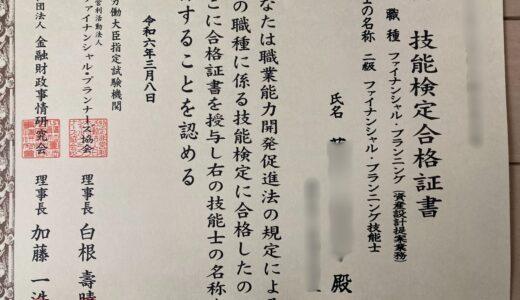 技能検定合格証書
職種 ファイナンシャル・プランニング(資産設計提案業務)
士の名称 二級 ファイナンシャル・プランニング技能士
氏名
殿
なたは職業能力開発促進法の規定による
の職種に係る技能検定に合格したの
こに合格証書を授与し右の技能士の名称
することを認める
令和六年三月八日
労働大臣指定試験機関
営利活動法人
ファイナンシャル・プランナーズ協会
理事長 白根壽晴
団法人 金融財政事情研究会
理事長 加藤一浩